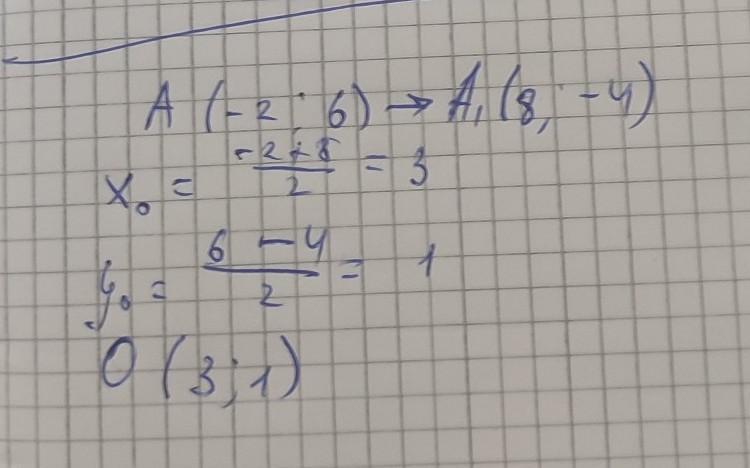 A (-2; 6) → A₁ (8; -4)
x₀ = (-2+8)/2 = 3
y₀ = (6-4)/2 = 1
O (3; 1)